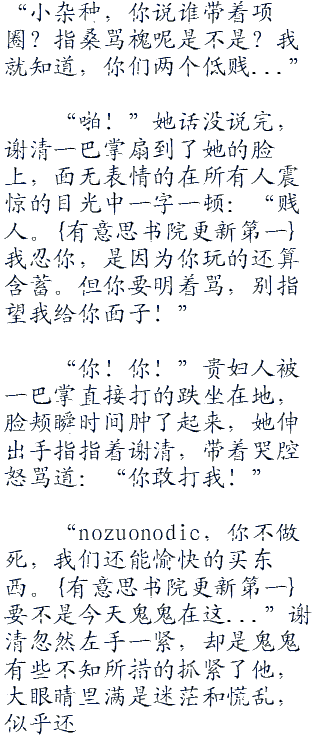 “小杂种，你说谁带着项
圈？指桑骂槐呢是不是？我
就知道，你们两个低贱...”
“啪！”她话没说完，
谢清一巴掌扇到了她的脸
上，面无表情的在所有人震
惊的目光中一字一顿：“贱
人。{有意思书院更新第一}
我忍你，是因为你玩的还算
含蓄。但你要明着骂，别指
望我给你面子！”
“你！你！”贵妇人被
一巴掌直接打的跌坐在地，
脸颊瞬时间肿了起来，她伸
出手指指着谢清，带着哭腔
怒骂道：“你敢打我！”
“nozuonodic，你不做
死，我们还能愉快的买东
西。{有意思书院更新第一}
要不是今天鬼鬼在这...”谢
清忽然左手一紧，却是鬼鬼
有些不知所措的抓紧了他，
大眼睛里满是迷茫和慌乱，
似乎还